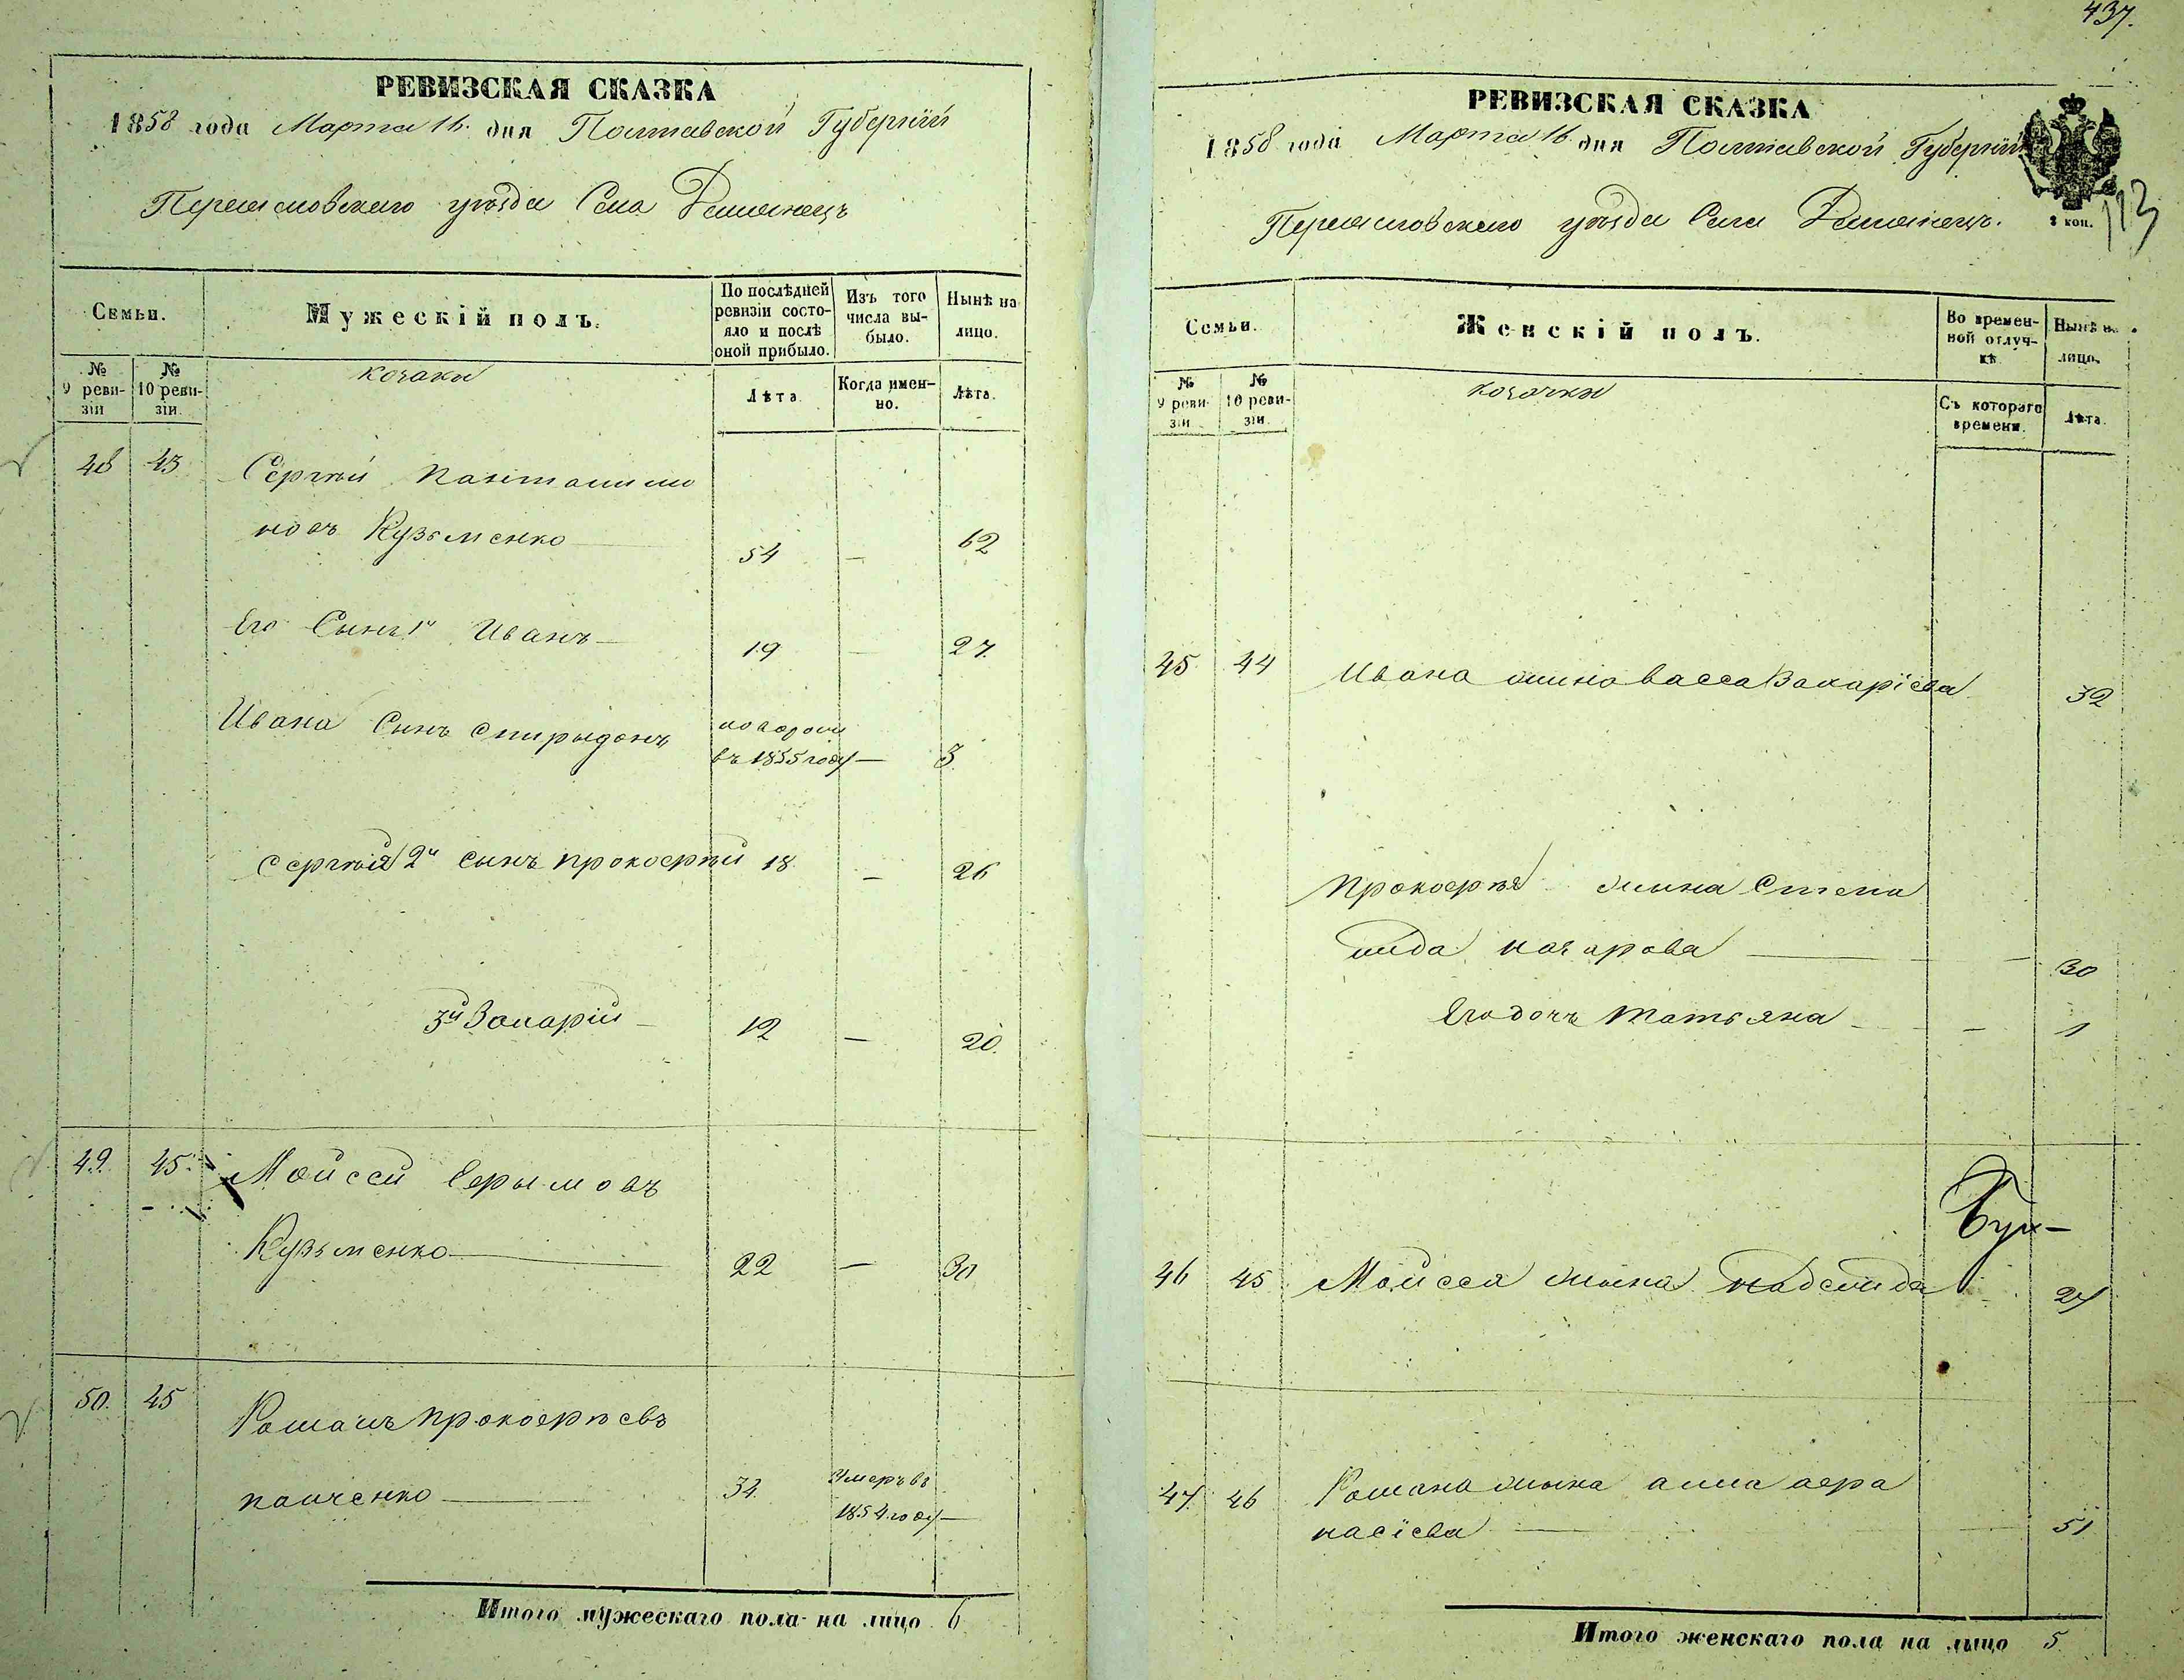 РЕВИЗСКАЯ СКАЗКА
1858 года Марта 16 дня Полтавской Губернии
Переяславскаго уѣзда Села
Семьи.
Мужескій полъ.
По послѣдней ревизіи состояло и послѣ оной прибыло.
Изъ того числа выбыло.
Нынѣ на лицо.
№ 9 ревизіи
№ 10 ревизіи.
козаки
Лѣта.
Когда именно.
Лѣта.
48 43 Сергѣй Пантелимо
новъ Кузьменко 54 — 62
Его Сынъ 1й Иванъ — 19 — 27
Ивана Сынъ Спиридонъ
въ 1855 году — 3
Сергѣя 2й сынъ Прокофій 18 — 26
3й Захарій — 12 — 20.
49. 45. Мойсей Ефимовъ
Кузьменко 22 — 30
50. 45 Романъ Прокофьевъ
Панченко 34 Умеръ въ
1854 году —
Итого мужескаго пола на лицо 6
437.
РЕВИЗСКАЯ СКАЗКА
1858 года Марта 16 дня Полтавской Губерніи
Переяславскаго уѣзда Села
3 коп.
113
Семьи.
Женскій полъ.
Во временной отлучкѣ.
Нынѣ на лицо.
№ 9 ревизіи
№ 10 ревизіи.
козачки
Съ котораго времени.
Лѣта.
45. 44 Ивана жина Васса Захаріева 32
Прокофія жина Степа
нида Назарова — 30
Его дочь Татьяна — — 1
46 45 Мойсея жина 27
47. 46 Романа жина Анна Афа
насіева — — 51
Итого женскаго пола на лицо 5